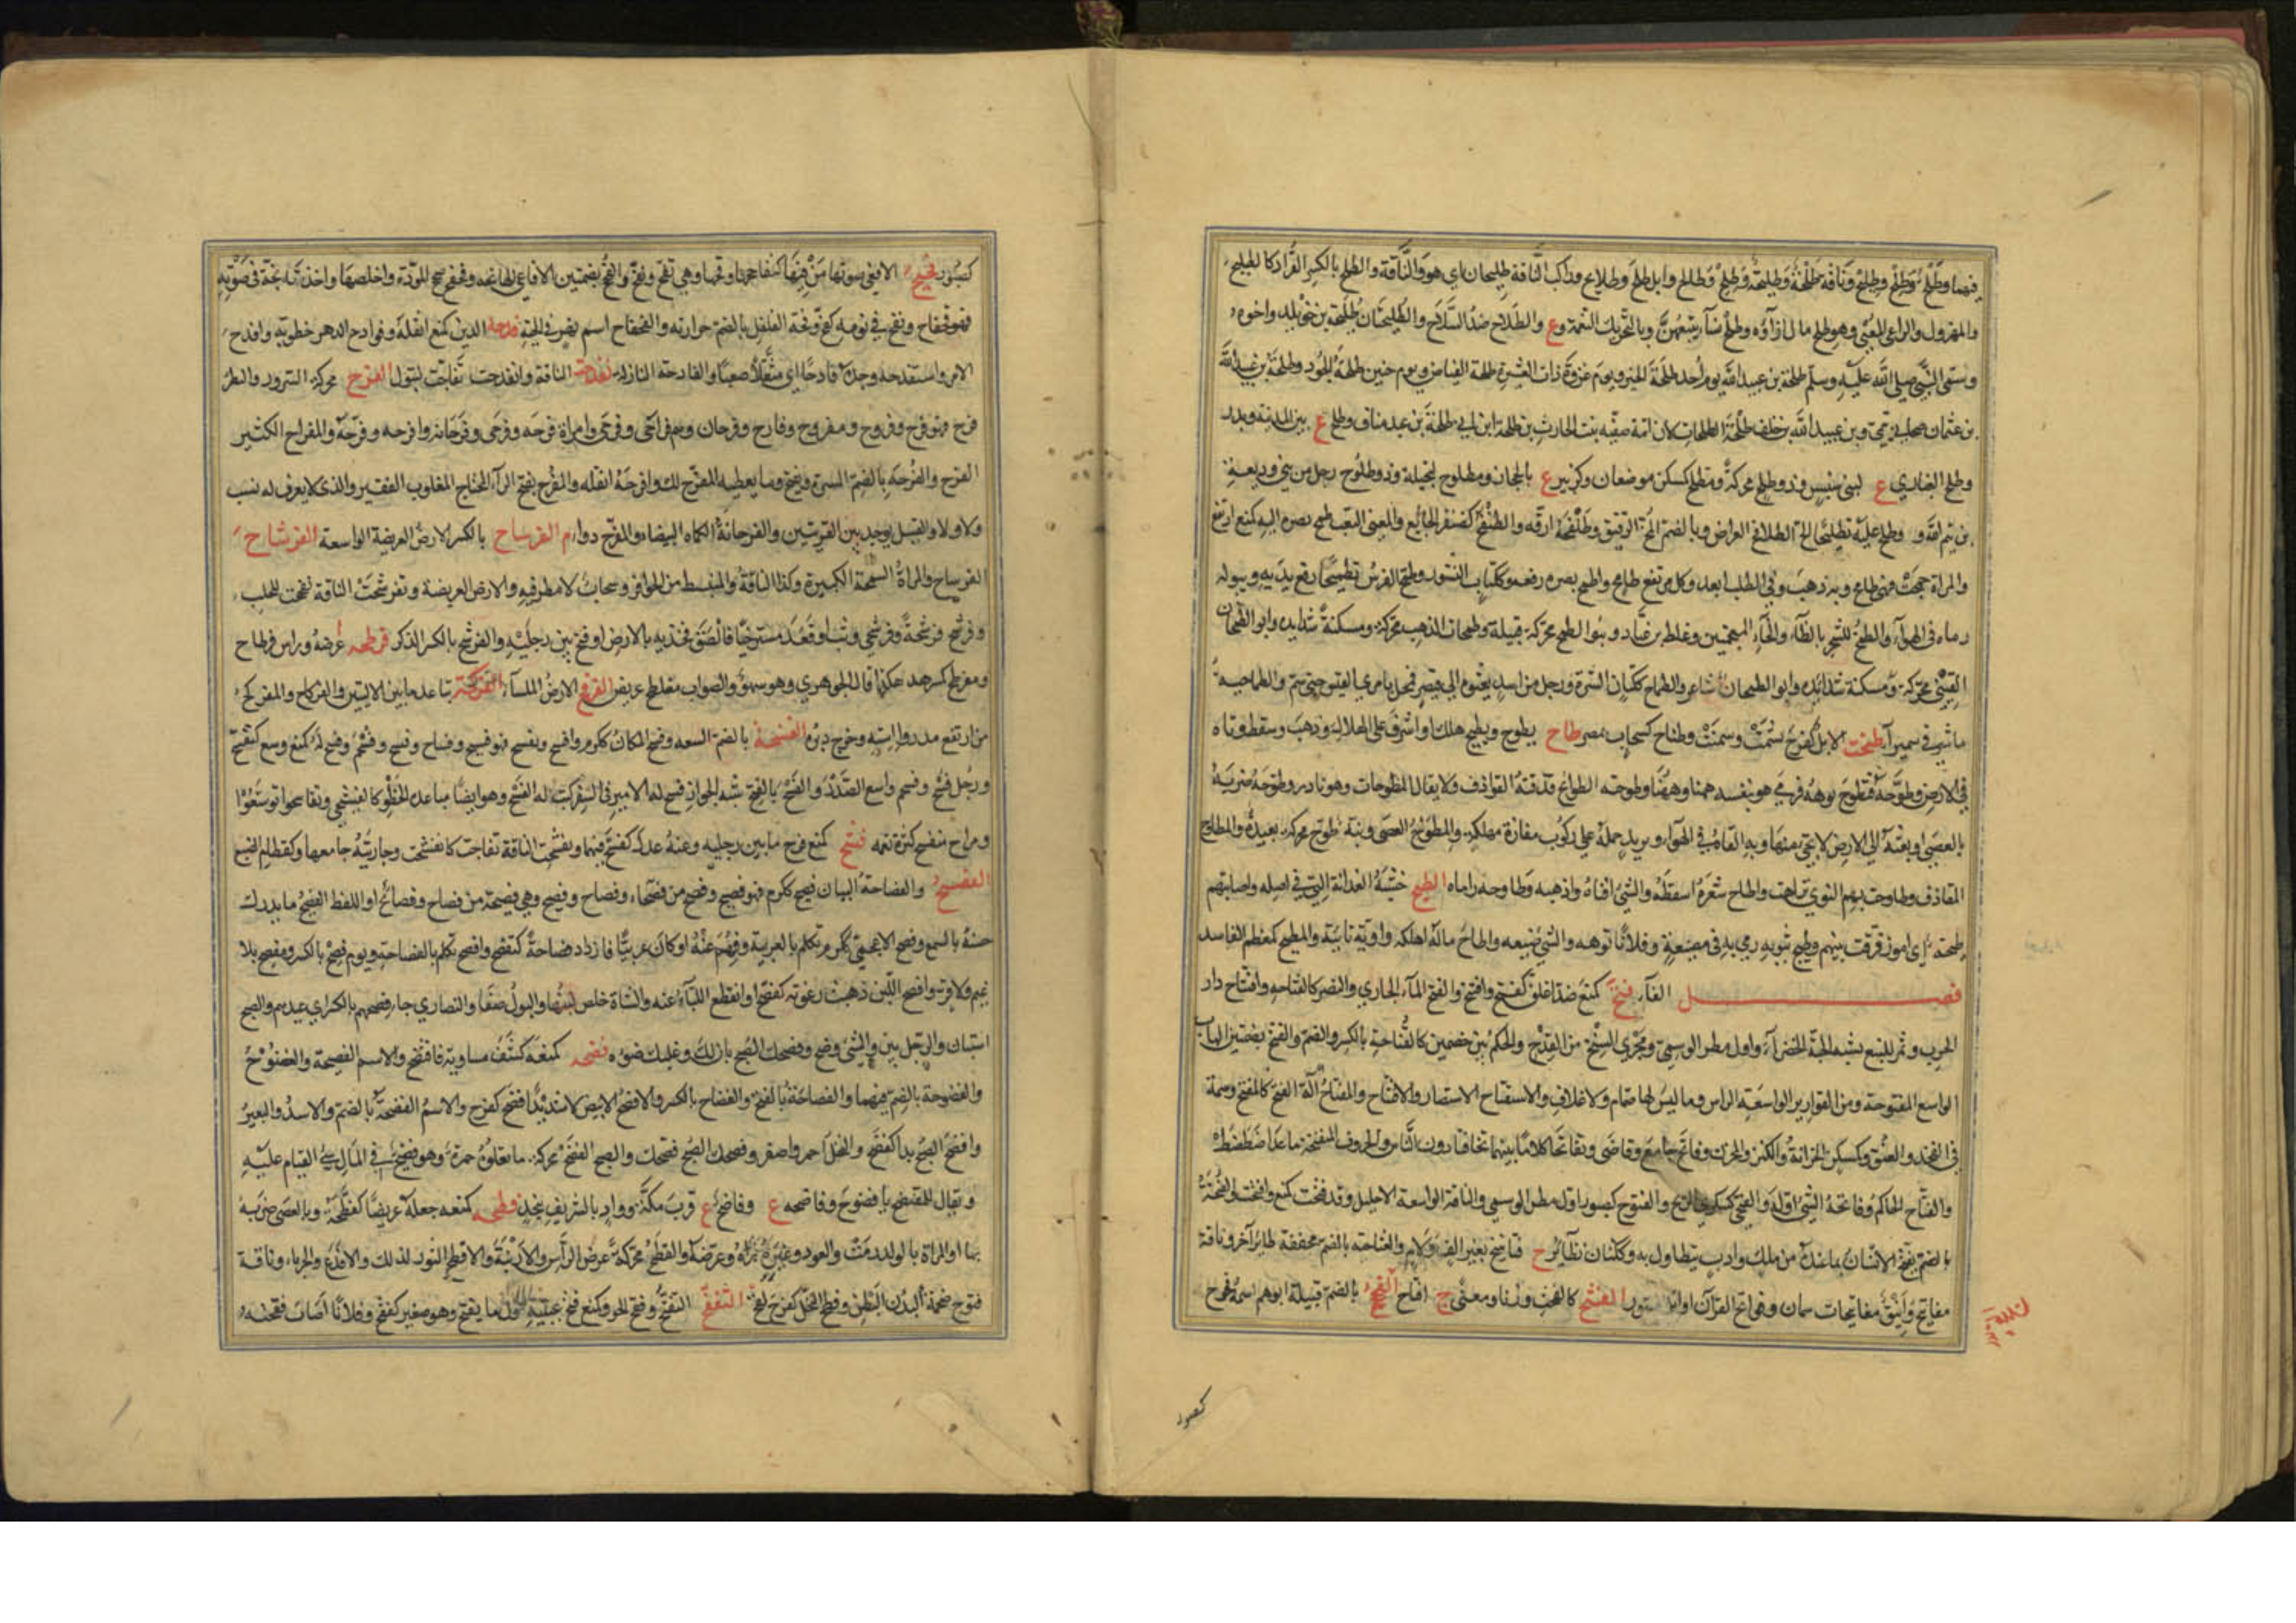 فيهما وطلح وطلح وناقة طلحة وطليحة وطلح وطلاح وابل طلح وطلائح وراكب الناقة طليحان اي هو والناقة والطلح بالكسر القراد كالطليح
والمهزول والراعي المعيي وهو طلح مال ازاؤه وطلح نساء يتبعهن وبالتحريك النعمة وع والطلاح ضد الصلاح والطليحتان طليحة بن خويلد واخوه
وسمى النبي صلى الله عليه وسلم طلحة بن عبيد الله يوم أحد طلحة الخير ويوم غزوة ذات العشيرة طلحة الفياض ويوم حنين طلحة الجود وطلحة بن عبيد الله
بن عثمان صحابي تيمي وبن عبيد الله بن خلف طلحة الطلحات لان امه صفية بنت الحارث بن طلحة ابن ابي طلحة بن عبد مناف وطلح ع بين المدينة وبدر
وطلح الغباري ع لبني سنبس وذو طلح محركة ومطلح كمسكن موضعان وكزبير ع بالحجاز ومطلوح لبجيلة وذو طلوح رجل من بني وديعة
بن تيم الله و وطلح عليه تطليحا الح الطلافح العراض وبالضم المخ الرقيق وطلفحه ارقه والطلنفح كغضنفر الجائع والمعيي التعب طمح بصره اليه كمنع ارتفع
والمراة جمحت فهي طامح وبه ذهب وفي الطلب ابعد وكل مرتفع طامح واطمح بصره رفعه وككتاب النشوز وطمح الفرس تطميحا رفع يديه وببوله
رماه في الهواء والطمح للشجر بالظاء والخاء المعجمتين وغلط بن عباد وبنو الطمح محركة قبيلة وطمحات الدهر محركة ومسكنة شدايده وابو الطمحان
القيني محركة ومسكنة شدايده وابو الطمحان شاعر والطماح ككتان الشره ورجل من اسد بعثوه الى قيصر فمحل بامرئ القيس حتى سم والطماحية
ماء شرقي سميراء طنحت الابل كفرح بشمت وسمنت وطناح كسحاب بمصر طاح يطوح ويطيح هلك او اشرف على الهلاك وذهب وسقط وتاه
في الارض وطوحه فتطوح توهه فرمى هو بنفسه ههنا وههنا وطوحته الطوائح قذفته القواذف ولا يقال المطوحات وهو نادر وطوحه ضربه
بالعصى او بعثه الى الارض لا يجئ منها وبه القاه في الهواء وبزيد حمله على ركوب مفازة مهلكة والمطواح العصى ونية طوح محركة بعيدة والمطاوح
المقاذف وطاوحت بهم النوى ترامت واطاح شعره اسقطه والشئ افناه واذهبه وطاوحه راماه الطيح خشبة الفدان التي في اصله واصابتهم
طيحة اي امور فرقت بينهم وطيح بثوبه رمى به في مضيعة وفلانا توهه والشئ ضيعه واطاح ماله اهلكه واويه يائية والمطيح كمعظم الفاسد
فصل الفاء فتح كمنع ضد اغلق كفتح وافتتح والفتح الماء الجاري والنصر كالفتاحة وافتتاح دار
الحرب وثمر للنبع يشبه الحبة الخضراء واول مطر الوسمي ومجرى السنخ من القدح والحكم بين خصمين كالفتاحة بالكسر والضم والفتح بضمتين الباب
الواسع المفتوحة ومن القوارير الواسعة الراس وما ليس لها صمام ولا غلاف والاستفتاح الاستنصار والافتتاح والمفتاح آلة الفتح كالمفتح وسمة
في الفخذ والعنق وكمسكن الخزانة والكنز والمخزن وفاتح جامع وقاضى وتفاتحا كلاما بينهما تخافتا دون الناس والحروف المنفتحة ما عدا ضطصظ
والفتاح الحاكم وفاتحة الشئ اوله والفتحى كسكرى الريح والفتوح كصبور اول مطر الوسمي والناقة الواسعة الاحليل وقد فتحت كمنع وافتحت والفتحة
بالضم تفتح الانسان بما عنده من ملك وادب يتطاول به وككتان طائر ح فتاتيح بغير الف ولام والفتاحة بالضم مخففة طائر آخر وناقة
مفاتح واينق مفاتيحات سمان وفواتح القرآن اوائل السور الفثح كالفحث وزنا ومعنى ج افثاح الفجح بالضم قبيلة ابوهم اسمه فجوح
كصبور
كصبور فحيح الافعى صوتها من فيها كتفحاحها وفحها وهي تفح وتفح والفح بضمتين الافاعي الهائجة وفحفح صحح المودة واخلصها واخذته بحة في صوته
فهو فحفاح ونفخ في نومه كفح وفحة الفلفل بالضم حرارته والفحفاح اسم نهر في الجنة فدحه الدين كمنع اثقله وفوادح الدهر خطوبه وافدح
الامر واستفدحه وجده فادحا اي مثقلا صعبا والفادحة النازلة تفذحت الناقة وانفذحت تفاجت لتبول الفرح محركة السرور والبطر
فرح فهو فرح وفروح ومفروح وفارح وفرحان وهم فراحى وفرحى وامراة فرحه وفرحى وفرحانة وافرحه وفرحه والمفراح الكثير
الفرح والفرحة بالضم المسرة ويفتح وما يعطيه المفرح لك وافرحه اثقله والمفرح بفتح الراء المحتاج المغلوب الفقير والذي لا يعرف له نسب
ولا ولاء والقتيل يوجد بين القريتين والفرحانة الكماة البيضاء والمفرح دواء م الفرساح بالكسر الارض العريضة الواسعة الفرشاح
الفرساح والمراة السمجة الكبيرة وكذا الناقة والمنبسط من الحوافر وسحاب لا مطر فيه والارض العريضة وتفرشحت الناقة تفحجت للحلب
وفرشح فرشحة وفرشحى وثب او قعد مسترخيا فالصق فخذيه بالارض او فتح بين رجليه والفرشح بالكسر الذكر فرطحه عرضه وراس فرطاح
ومفرطح كمسرهد هكذا قال الجوهري وهو سهو والصواب مفلطح عريض القرفح الارض الملساء الفركحة تباعد ما بين الاليتين والفركاح والمفركح
من ارتفع مدروا استه وخرج دبره الفسحة بالضم السعة وفسح المكان ككرم وافسح وتفسح فهو فسيح وفساح وفسح وفسحم وفسح له كمنع وسع كتفسح
ورجل فسح وفسحم واسع الصدر والفسح بالفتح شبه الجواز فسح له الامير في السفر كتب له الفسح وهو ايضا مباعدة الخطو كالفيسحى وتفاسحوا توسعوا
ومراح منفسح كثرة نعمه فشح كمنع فرج ما بين رجليه وعنه عدل كفشح فيهما وتفشحت الناقة تفاجت كانفشحت وجاريته جامعها وكقطام الضبع
الفصيح والفصاحة البيان فصح ككرم فهو فصيح وفصح من فصحاء وفصاح وفصح وهي فصيحة من فصاح وفصائح او اللفظ الفصيح ما يدرك
حسنه بالسمع وفصح الاعجمي ككرم تكلم بالعربية وفهم عنه او كان عربيا فازداد فصاحة كتفصح وافصح تكلم بالفصاحة ويوم فصح بالكسر ومفصح بلا
غيم ولا قر وافصح اللبن ذهبت رغوته كفصح او انقطع اللباء عنه والشاة خلص لبنها والبول صفا والنصارى جاء فصحهم بالكسر اي عيدهم والصبح
استبان والرجل بين والشئ وضح وفصحك الصبح بان لك وغلبك ضوءه فضحه كمنعه كشف مساويه فافتضح والاسم الفضيحة والفضوح
والفضوحة بالضم فيهما والفضاحة بالفتح والفضاح بالكسر والافضح الابيض لا شديدا فضح كفرح والاسم الفضحة بالضم والاسد والبعير
وافضح الصبح بدا كفضح والنخل احمر واصفر وفضحك الصبح فصحك والصبح الفضح محركة ما تعلوه حمرة وهو فضيح في المال سيئ القيام عليه
ويقال للمفتضح يا فضوح وفاضحة ع وفاضح ع قرب مكة وواد بالشريف بنجد فطحه كمنعه جعله عريضا كفطحه وبالعصى ضربه
بها والمراة بالولد رمت والعود وغيره براه وعرضه والفطح محركة عرض الراس والارنبة والافطح الثور لذلك والافدع والحرباء وناقة
فطوح ضخمة البدن البطن وفطح النخل كفرح لقح التفقح التفتح وفقح الجرو كمنع فتح عينيه اول ما يفتح وهو صغير كفقح وفلانا اصاب فقحته